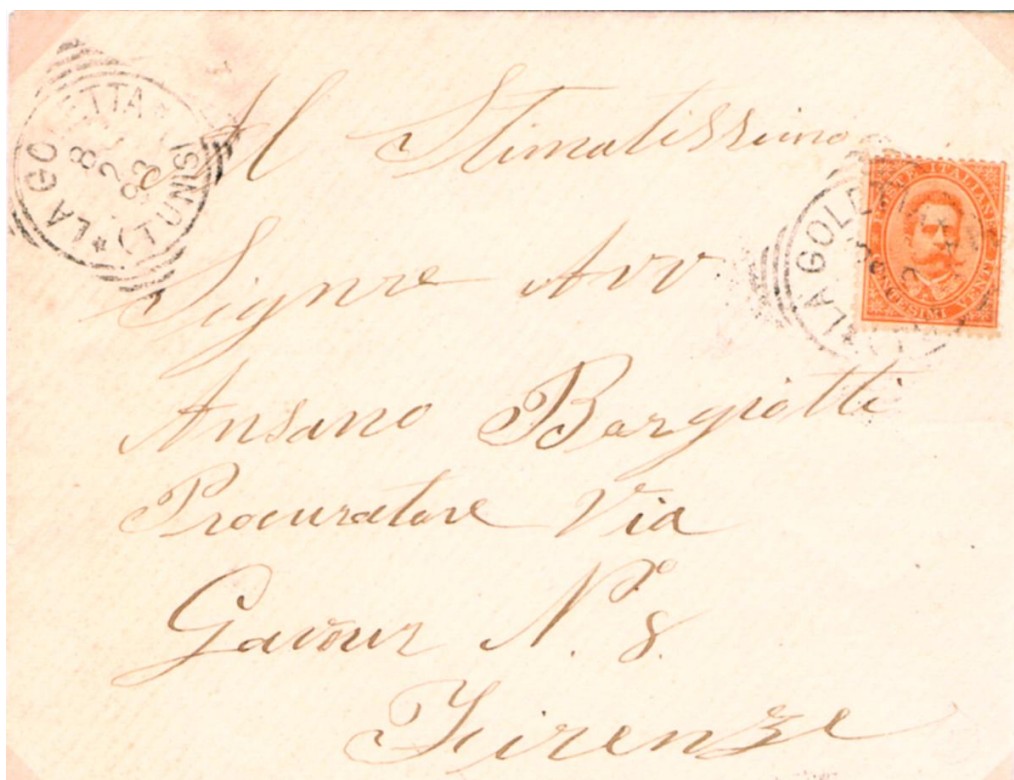 LA GOLETTA
(TUNISI)
8
2
93
Al Stimatissimo
POSTE ITALIANE
CENTESIMI
LA GOLETTA
Signore Avv
Ansano Bargiotti
Procuratore Via
Gavour N.º 8.
Firenze